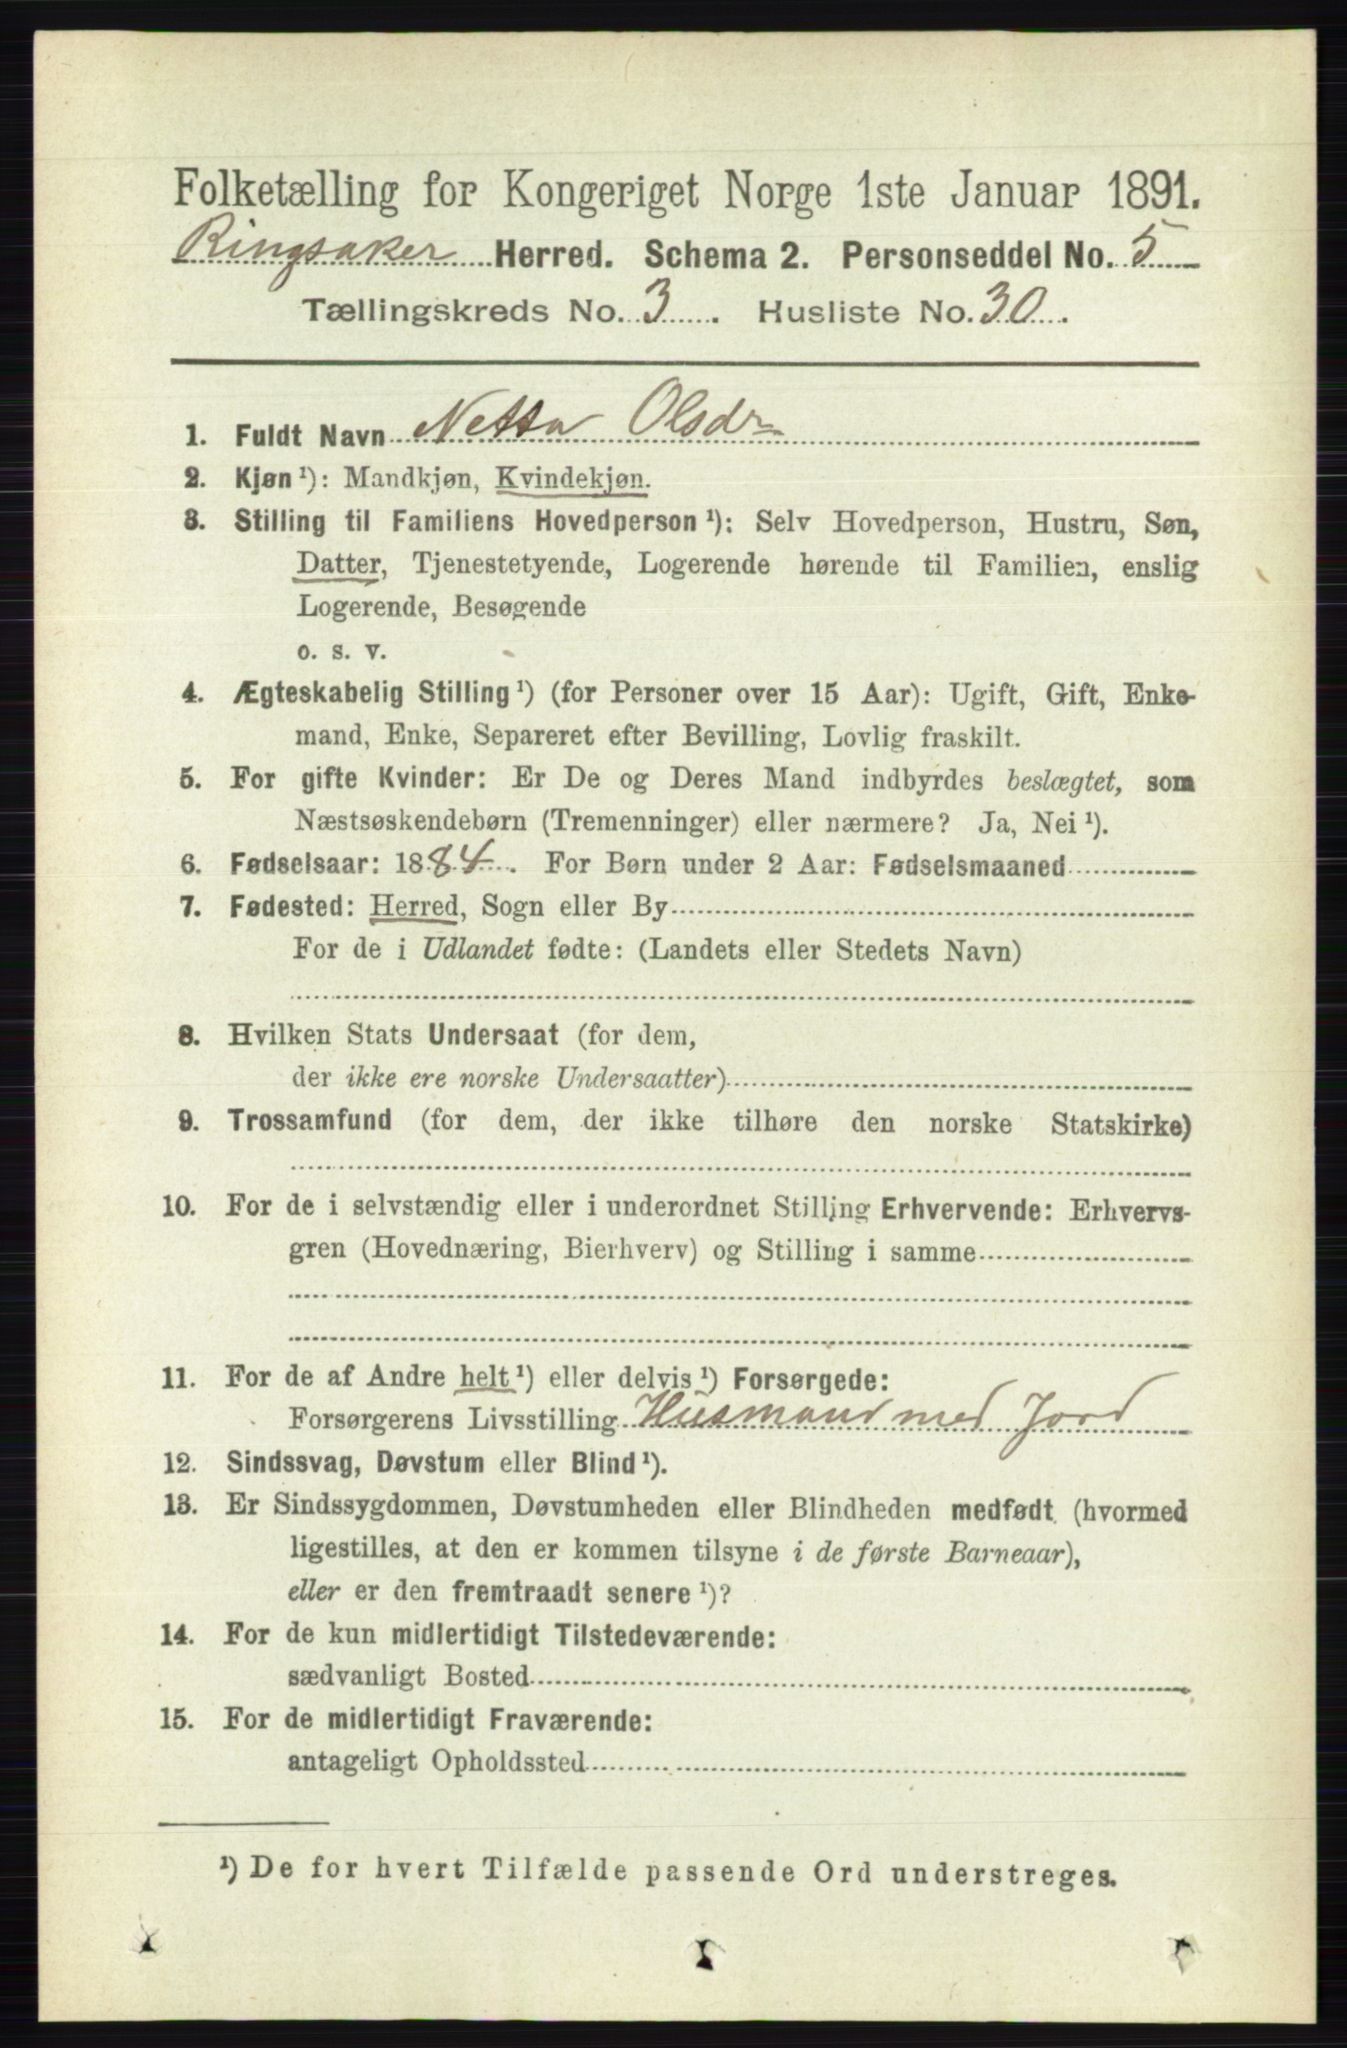 Folketælling for Kongeriget Norge 1ste Januar 1891.
Ringsaker Herred. Schema 2. Personseddel No. 5
Tællingskreds No. 3. Husliste No. 30.
1. Fuldt Navn Netta Olsdr
2. Kjøn ¹): Mandkjøn, Kvindekjøn.
3. Stilling til Familiens Hovedperson ¹): Selv Hovedperson, Hustru, Søn,
Datter, Tjenestetyende, Logerende hørende til Familien, enslig
Logerende, Besøgende
o. s. v.
4. Ægteskabelig Stilling ¹) (for Personer over 15 Aar): Ugift, Gift, Enke-
mand, Enke, Separeret efter Bevilling, Lovlig fraskilt.
5. For gifte Kvinder: Er De og Deres Mand indbyrdes beslægtet, som
Næstsøskendebørn (Tremenninger) eller nærmere? Ja, Nei ¹).
6. Fødselsaar: 1884. For Børn under 2 Aar: Fødselsmaaned
7. Fødested: Herred, Sogn eller By
For de i Udlandet fødte: (Landets eller Stedets Navn)
8. Hvilken Stats Undersaat (for dem,
der ikke ere norske Undersaatter)
9. Trossamfund (for dem, der ikke tilhøre den norske Statskirke)
10. For de i selvstændig eller i underordnet Stilling Erhvervende: Erhvervs-
gren (Hovednæring, Bierhverv) og Stilling i samme
11. For de af Andre helt ¹) eller delvis ¹) Forsørgede:
Forsørgerens Livsstilling Husmand med Jord
12. Sindssvag, Døvstum eller Blind ¹).
13. Er Sindssygdommen, Døvstumheden eller Blindheden medfødt (hvormed
ligestilles, at den er kommen tilsyne i de første Barneaar),
eller er den fremtraadt senere ¹)?
14. For de kun midlertidigt Tilstedeværende:
sædvanligt Bosted
15. For de midlertidigt Fraværende:
antageligt Opholdssted
¹) De for hvert Tilfælde passende Ord understreges.